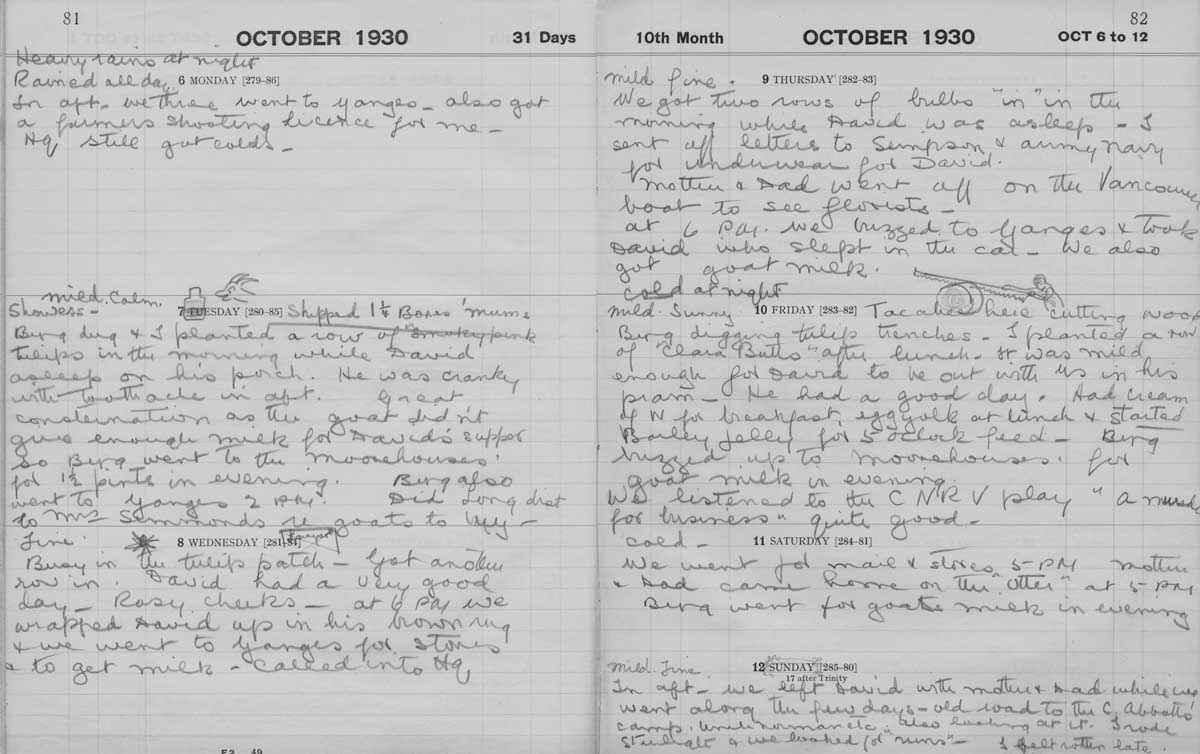 81
OCTOBER 1930 31 Days
Heavy rains at night
Rained all day. 6 MONDAY [279-86]
In aft- we three went to Ganges - also got
a farmers shooting licence for me -
Hq still got colds -
mild. Calm.
Showers - 7 TUESDAY [280-85] Shipped 1½ Boxes 'mums
Birg dug & I planted a row of smoky pink
tulips in the morning while David
asleep on his porch. He was cranky
with toothache in aft. Great
consternation as the goat didn't
give enough milk for David's supper
So Birg went to the Moorehouses'
for 1½ pints in evening. Birg also
went to Ganges 2 PM. Did long dist
to Mrs Simmonds re goats to buy -
Fine. 8 WEDNESDAY [281-84]
Busy in the tulip patch - Got another
row in. David had a very good
day - Rosy cheeks - at 6 PM we
wrapped David up in his brown rug
& we went to Ganges for stores
& to get milk - Called into Hq
53 49
82
10th Month OCTOBER 1930 OCT 6 to 12
mild fine. 9 THURSDAY [282-83]
We got two rows of bulbs "in" in the
morning while David was asleep - I
sent off letters to Simpson & army navy
for underwear for David.
Mother & Dad went off on the Vancouver
boat to see florists -
at 6 PM. we buzzed to Ganges & took
David who slept in the car - We also
got goat milk.
cold at night
Mild. Sunny 10 FRIDAY [283-82] here cutting wood
Birg digging tulip trenches - I planted a row
of "Clara Butts" after lunch - It was mild
enough for David to be out with us in his
pram - He had a good day. Had cream
of W for breakfast, egg yolk at lunch & started
Barley Jelly for 5 o'clock feed - Birg
buzzed up to Moorehouses' for
goat milk in evening.
We listened to the C N R V play "a
for business" quite good -
cold - 11 SATURDAY [284-81]
We went for mail & stores 5-PM Mother
& Dad came home on the "Otter" at 5-PM
Birg went for goats milk in evening
Mild. Fine. 12 SUNDAY [285-80]
17 after Trinity
In aft - we left David with mother & Dad while we
went along the few days - old road to the C. Abbotts'
camp. also looking at it. I rode
& we looked for "runs" - I felt rotten late.